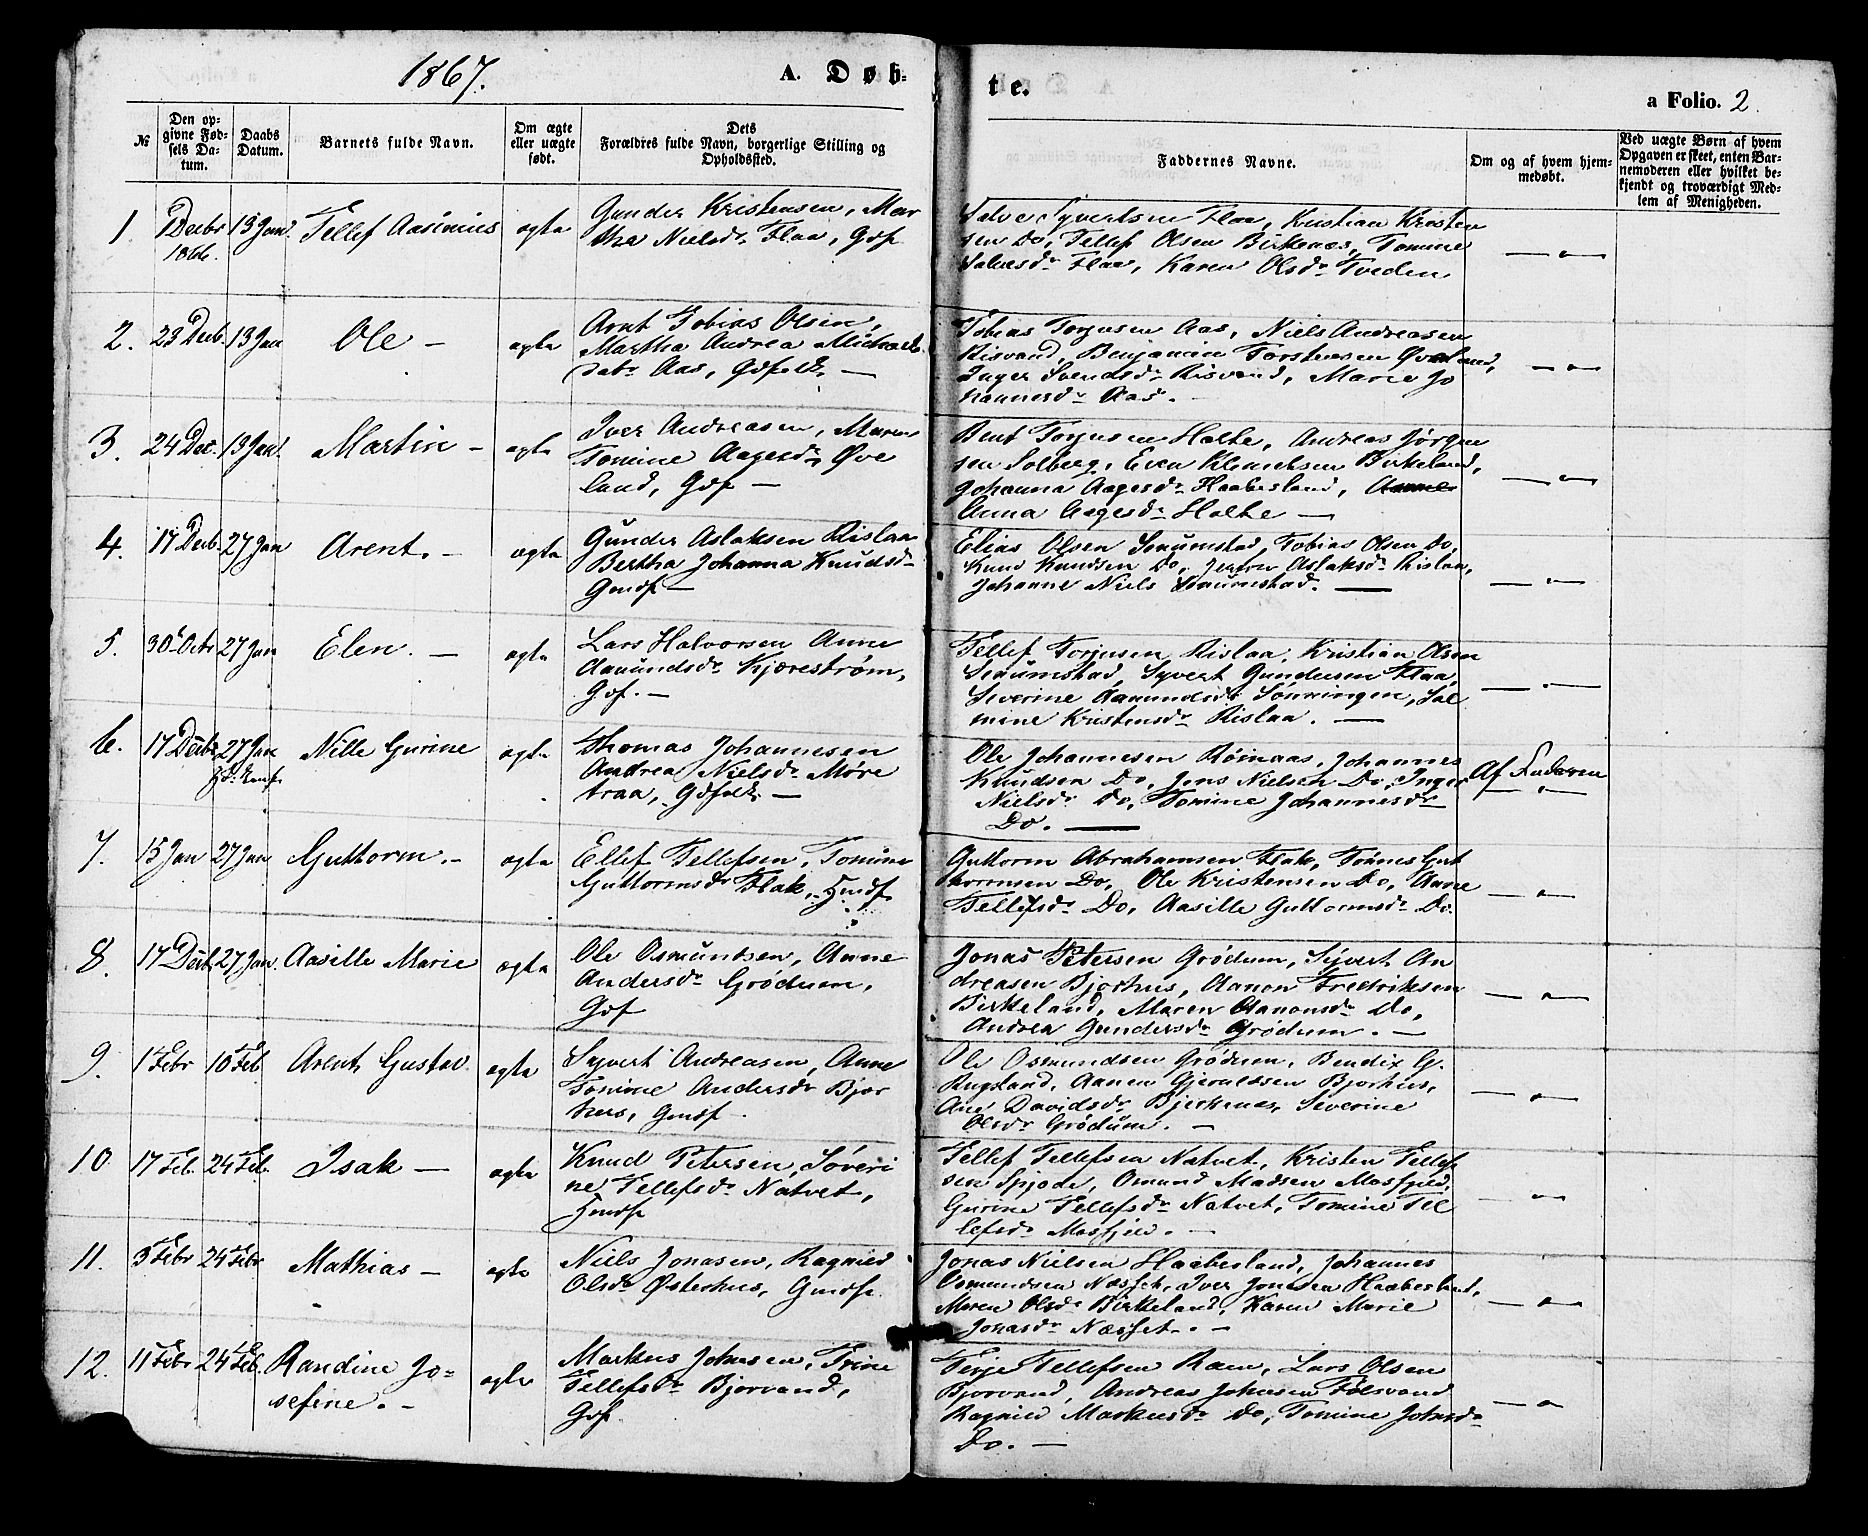 1867.
A. Døb-
te.
a Folio. 2.
№
Den op-
givne Fød-
sels Da-
tum.
Daabs
Datum.
Barnets fulde Navn.
Om ægte
eller uægte
født.
Dets
Forældres fulde Navn, borgerlige Stilling og
Opholdssted.
Faddernes Navne.
Om og af hvem hjem-
medøbt.
Ved uægte Børn af hvem
Opgaven er skeet, enten Bar-
nemoderen eller hvilket be-
kjendt og troværdigt Med-
lem af Menigheden.
1. Decbr 13 Jan. Tellef Aasimius ægte
1866.
Gunder Kristensen, Mar
tha Nielsdr Flaa, Gdf.
Salve Syvertsen Flaa, Kristian Kristen
sen Do, Tellef Olsen Birkenæs, Tomine
Salvesdr Flaa, Karen Olsdr Tveden
— " —
2. 23 Decb. 13 Jan Ole — ægte
Arnt Tobias Olsen,
Martha Andrea Michaels
datr Aas, Gdfolk. —
Tobias Torjusen Aas, Niels Andreasen
Risvand, Benjamin Torstensen Øveland,
Inger Svendsdr Risvand, Marie Jo
hannesdr Aas. —
— " —
3. 24 Dec. 13 Jan. Martin — ægte
Iver Andreasen, Maren
Tomine Aagesdr Øve
land, Gdf —
Bent Torjusen Holte, Andreas Jörgen
sen Solberg, Even Klemetsen Birkeland,
Johanna Aagesdr Haabesland,
Anna Aagesdr Holte —
— " —
4. 17 Decb. 27 Jan Arent. — ægte
Gunder Aslaksen Rislaa
Bertha Johanna Knudsdr
Gmdf —
Elias Olsen Senumstad, Tobias Olsen Do,
Knud Knudsen Do, Aslaksdr Rislaa,
Johanne Niels Senumstad. —
— " —
5. 30 Octr 27 Jan Elen. — ægte
Lars Halvorsen Anne
Aamundsdr Kjærestrøm,
Gdf. —
Tellef Torjusen Rislaa, Kristian Olsen
Senumstad, Syvert Gundersen Flaa,
Severine Aamundsdr Sönningen, Sal
mine Kristensdr Rislaa. —
— " —
6. 17 Decbr 27 Jan Nille Gurine ægte
Thomas Johannesen
Andrea Nielsdr Møre
traa, Gdfolk —
Ole Johannesen Røinaas, Johannes
Knudsen Do, Jens Nielsen Do, Inger
Nielsdr Do, Tomine Johannesdr
Do. —
Af Faderen
— " —
7. 15 Jan 27 Jan Guttorm. — ægte
Ellef Tellefsen, Tomine
Guttormsdr Flak, Hmdf.
Guttorm Abrahamsen Flak, Tönnes Gut
tormsen Do, Ole Kristensen Do, Anne
Tellefsdr Do, Aasille Guttormsdr Do.
— " —
8. 17 Decbr 27 Jan. Aasille Marie ægte
Ole Osmundsen, Anne
Andersdr Grödum,
Gdf
Jonas Petersen Grödum, Sijvert An
dreasen Bjorhus, Aanon Fredriksen
Birkeland, Maren Aanonsdr Do,
Andrea Gundersdr Grødum. —
— " —
9. 1 Febr 10 Feb. Arent Gustav. ægte
Syvert Andreasen, Anne
Tomine Andersdr Bjor
hus, Gmdf.
Ole Osmundsen Grödum, Bendix G.
Rugsland, Aanen Gjerulssen Bjorhus,
Ane Davidsdr Bjerkenæs, Severine
Olsdr Grödum. —
— " —
10. 17 Feb. 24 Feb. Isak — ægte
Knud Petersen, Söveri
ne Tellefsdr Natvet,
Hmdf
Tellef Tellefsen Natvet, Kristen Tellef
sen Spjode, Osmund Madsen Mosfjeld,
Gurine Tellefsdr Natvet, Tomine Tel
lefsdr Mosfjeld. —
— " —
11. 3 Febr 24 Febr Mathias — ægte
Niels Jonasen, Ragnild
Olsdr Østerhus, Gmdf.
Jonas Nielsen Haabesland, Johannes
Osmundsen Næsset, Iver Jonasen Haabesland,
Maren Olsdr Birkeland, Karen Marie
Jonasdr Næsset. —
— " —
12. 11 Febr 24 Feb. Randine Jo=
sefine. — ægte
Markus Johnsen, Trine
Tellefsdr Bjorvand,
Gdf.
Terje Tellefsen Raen, Lars Olsen
Bjorvand, Andreas Johnsen Følsvand
Ragnild Markusdr Do, Tomine Johnsdr
Do. —
— " —